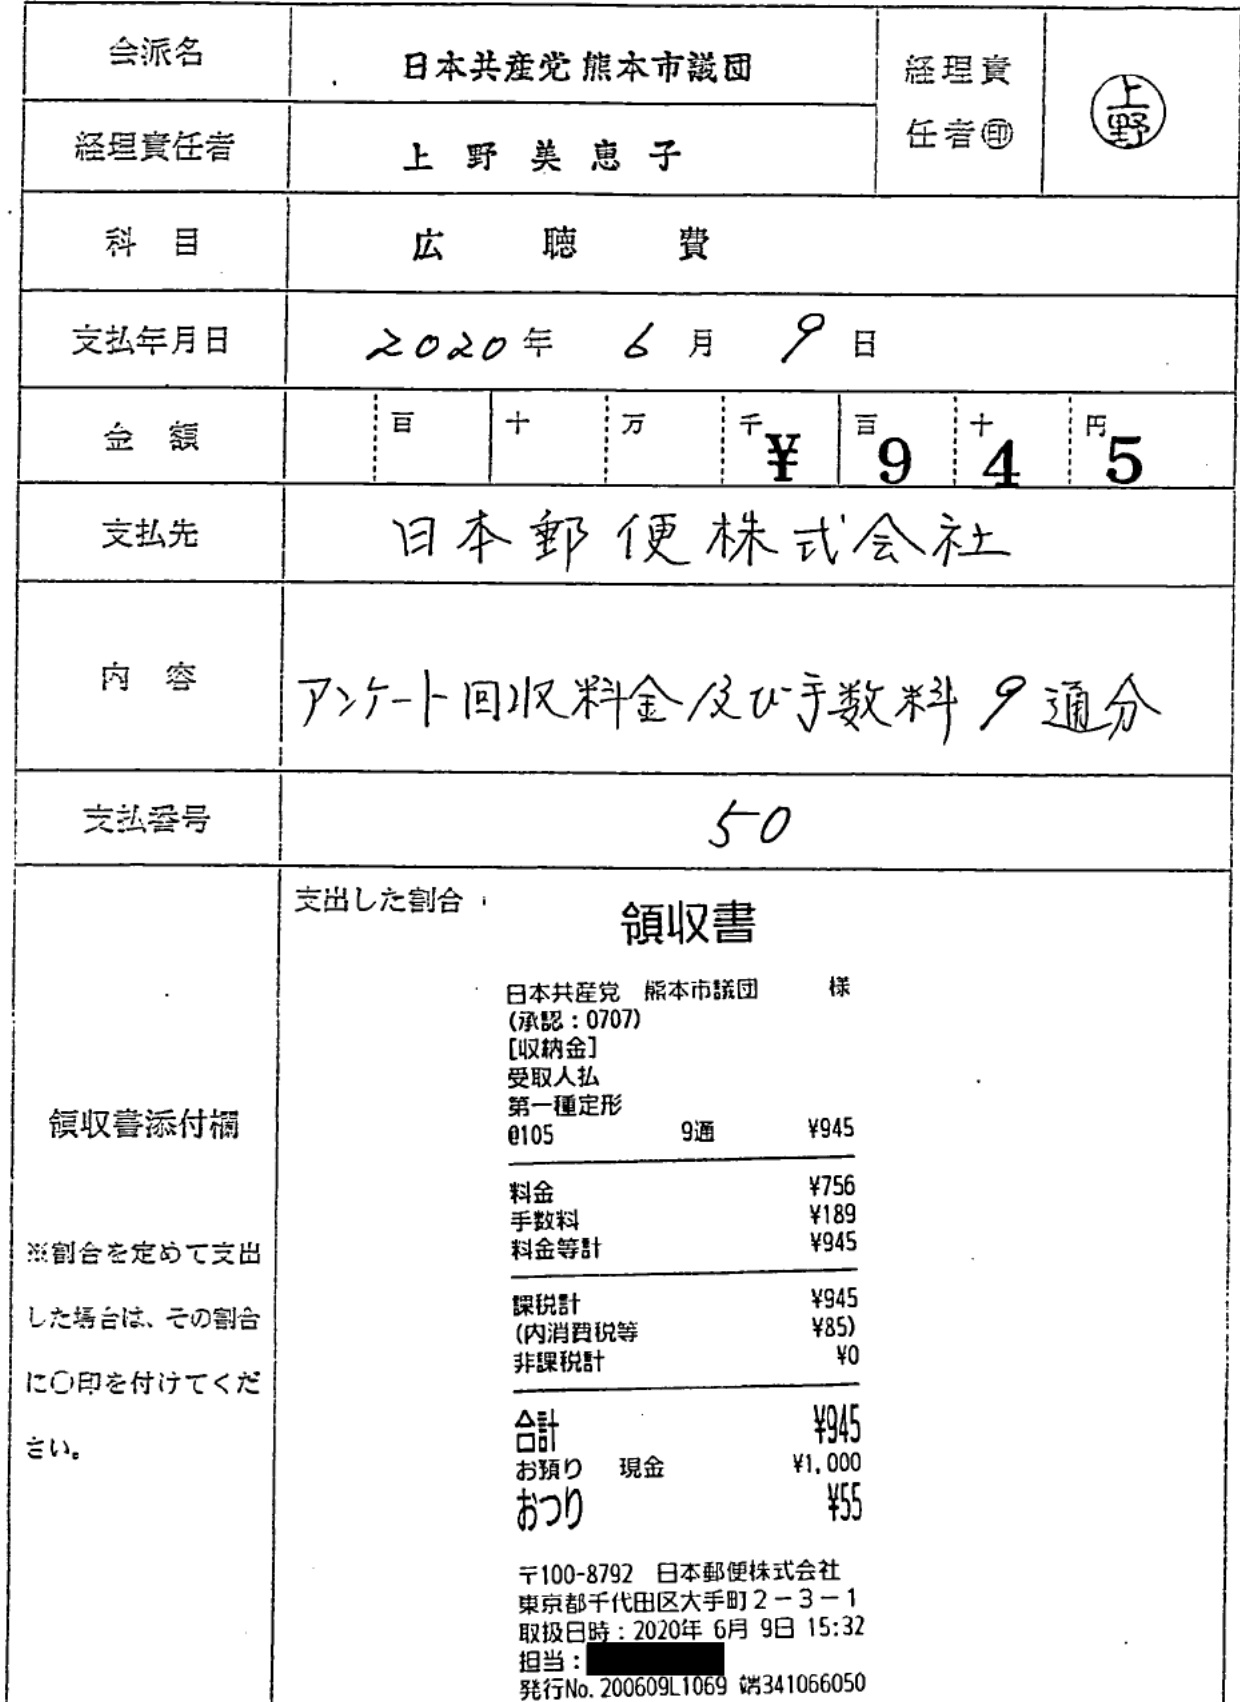 会派名 日本共産党 熊本市議団 経理責任者㊞ 上野
経理責任者 上野美恵子
科目 広聴費
支払年月日 2020年 6月 9日
金額 百 十 万 千 ¥ 百 9 十 4 円 5
支払先 日本郵便株式会社
内容 アンケート回収料金及び手数料 9通分
支払番号 50
支出した割合
領収書添付欄
※割合を定めて支出
した場合は、その割合
に〇印を付けてくだ
さい。
領収書
日本共産党 熊本市議団 様
(承認:0707)
[収納金]
受取人払
第一種定形
@105 9通 ¥945
料金 ¥756
手数料 ¥189
料金等計 ¥945
課税計 ¥945
(内消費税等 ¥85)
非課税計 ¥0
合計 ¥945
お預り 現金 ¥1,000
おつり ¥55
〒100-8792 日本郵便株式会社
東京都千代田区大手町2-3-1
取扱日時:2020年 6月 9日 15:32
担当:
発行No.200609L1069 端341066050